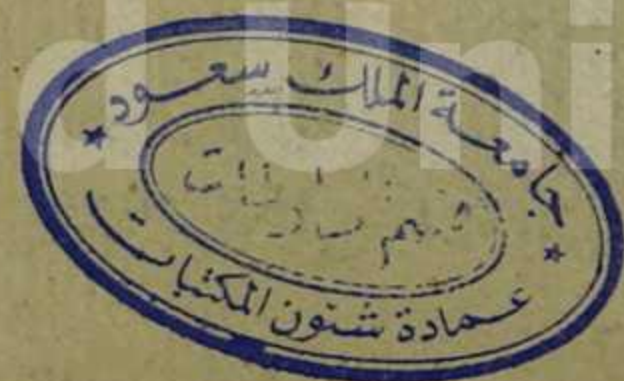 d Uni
جامعة الملك سعود
قسم
عمادة شئون المكتبات